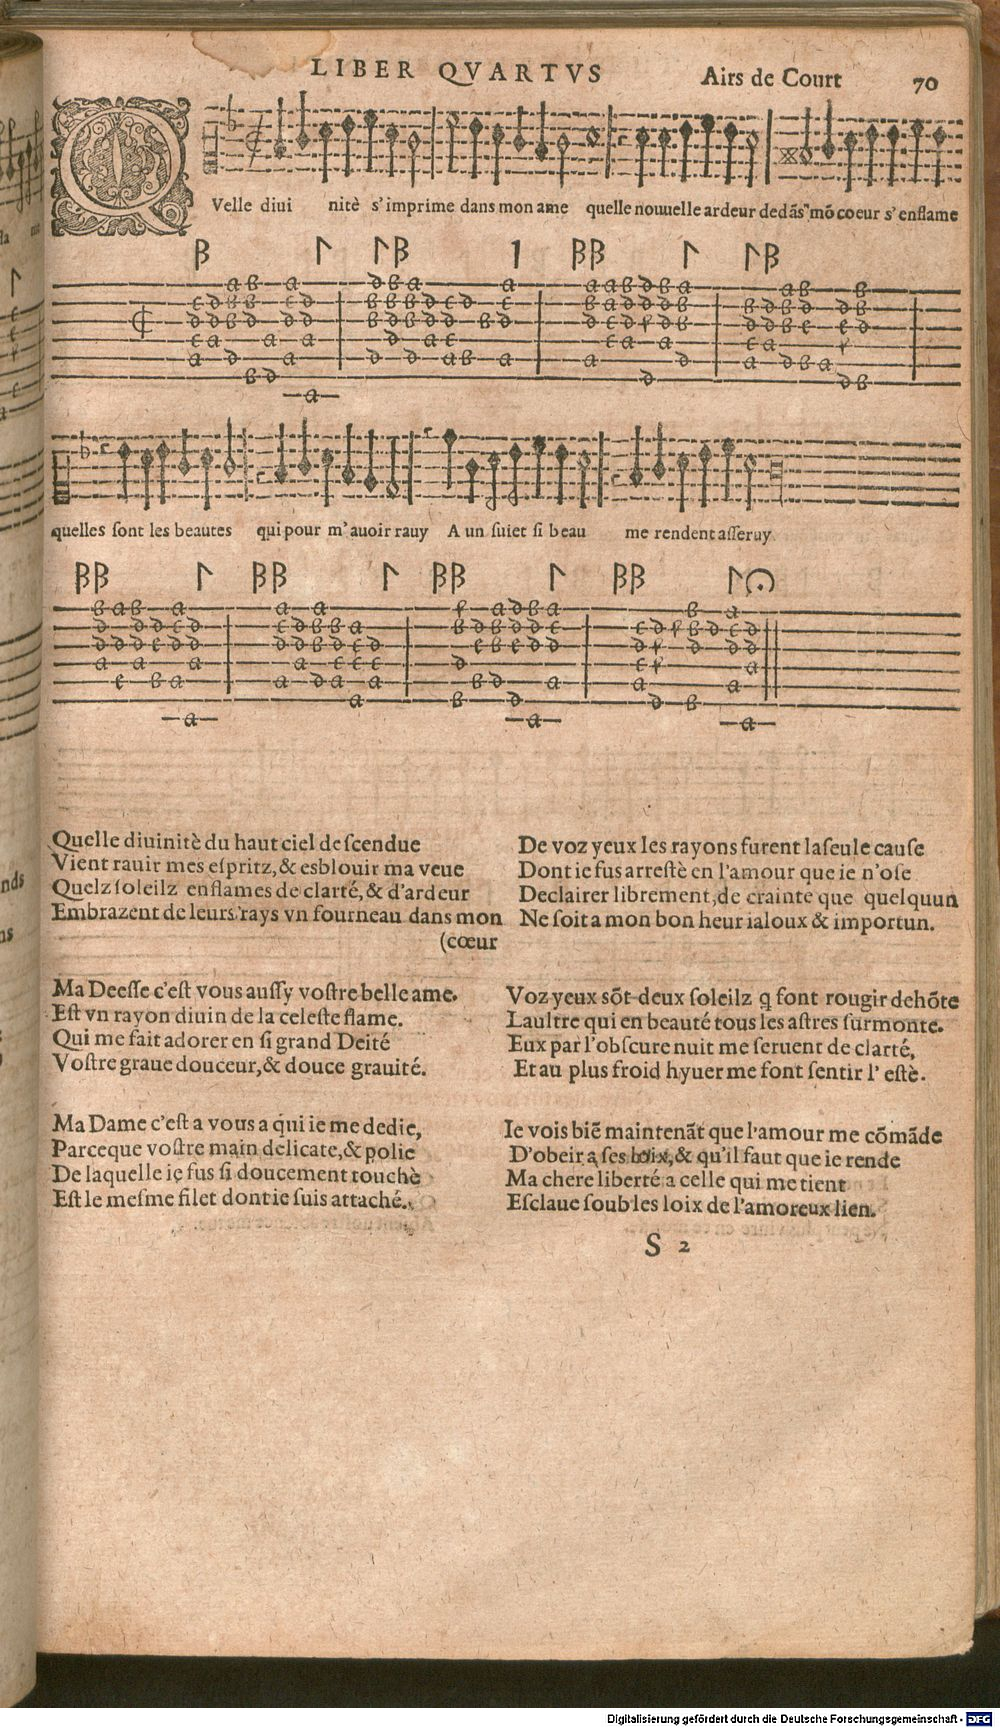 LIBER QVARTVS Airs de Court 70
QVelle diui nitè s'imprime dans mon ame quelle nouuelle ardeur dedãs mõ coeur s'enflame
quelles sont les beautes qui pour m'auoir rauy A un suiet si beau me rendent asseruy
Quelle diuinitè du haut ciel descendue
Vient rauir mes espritz, & esblouir ma veue
Quelz soleilz enflames de clarté, & d'ardeur
Embrazent de leurs rays vn fourneau dans mon
(cœur
Ma Deesse c'est vous aussy vostre belle ame.
Est vn rayon diuin de la celeste flame.
Qui me fait adorer en si grand Deité
Vostre graue douceur, & douce grauité.
Ma Dame c'est a vous a qui ie me dedie,
Parceque vostre main delicate, & polie
De laquelle ie fus si doucement touchè
Est le mesme filet dont ie suis attaché.
De voz yeux les rayons furent la seule cause
Dont ie fus arrestè en l'amour que ie n'ose
Declairer librement, de crainte que quelquun
Ne soit a mon bon heur ialoux & importun.
Voz yeux sõt deux soleilz q font rougir de hõte
Laultre qui en beauté tous les astres surmonte.
Eux par l'obscure nuit me seruent de clarté,
Et au plus froid hyuer me font sentir l'estè.
Ie vois biẽ maintenãt que l'amour me cõmãde
D'obeir a ses loix, & qu'il faut que ie rende
Ma chere liberté a celle qui me tient
Esclaue soub les loix de l'amoreux lien.
S 2
Digitalisierung gefördert durch die Deutsche Forschungsgemeinschaft - DFG